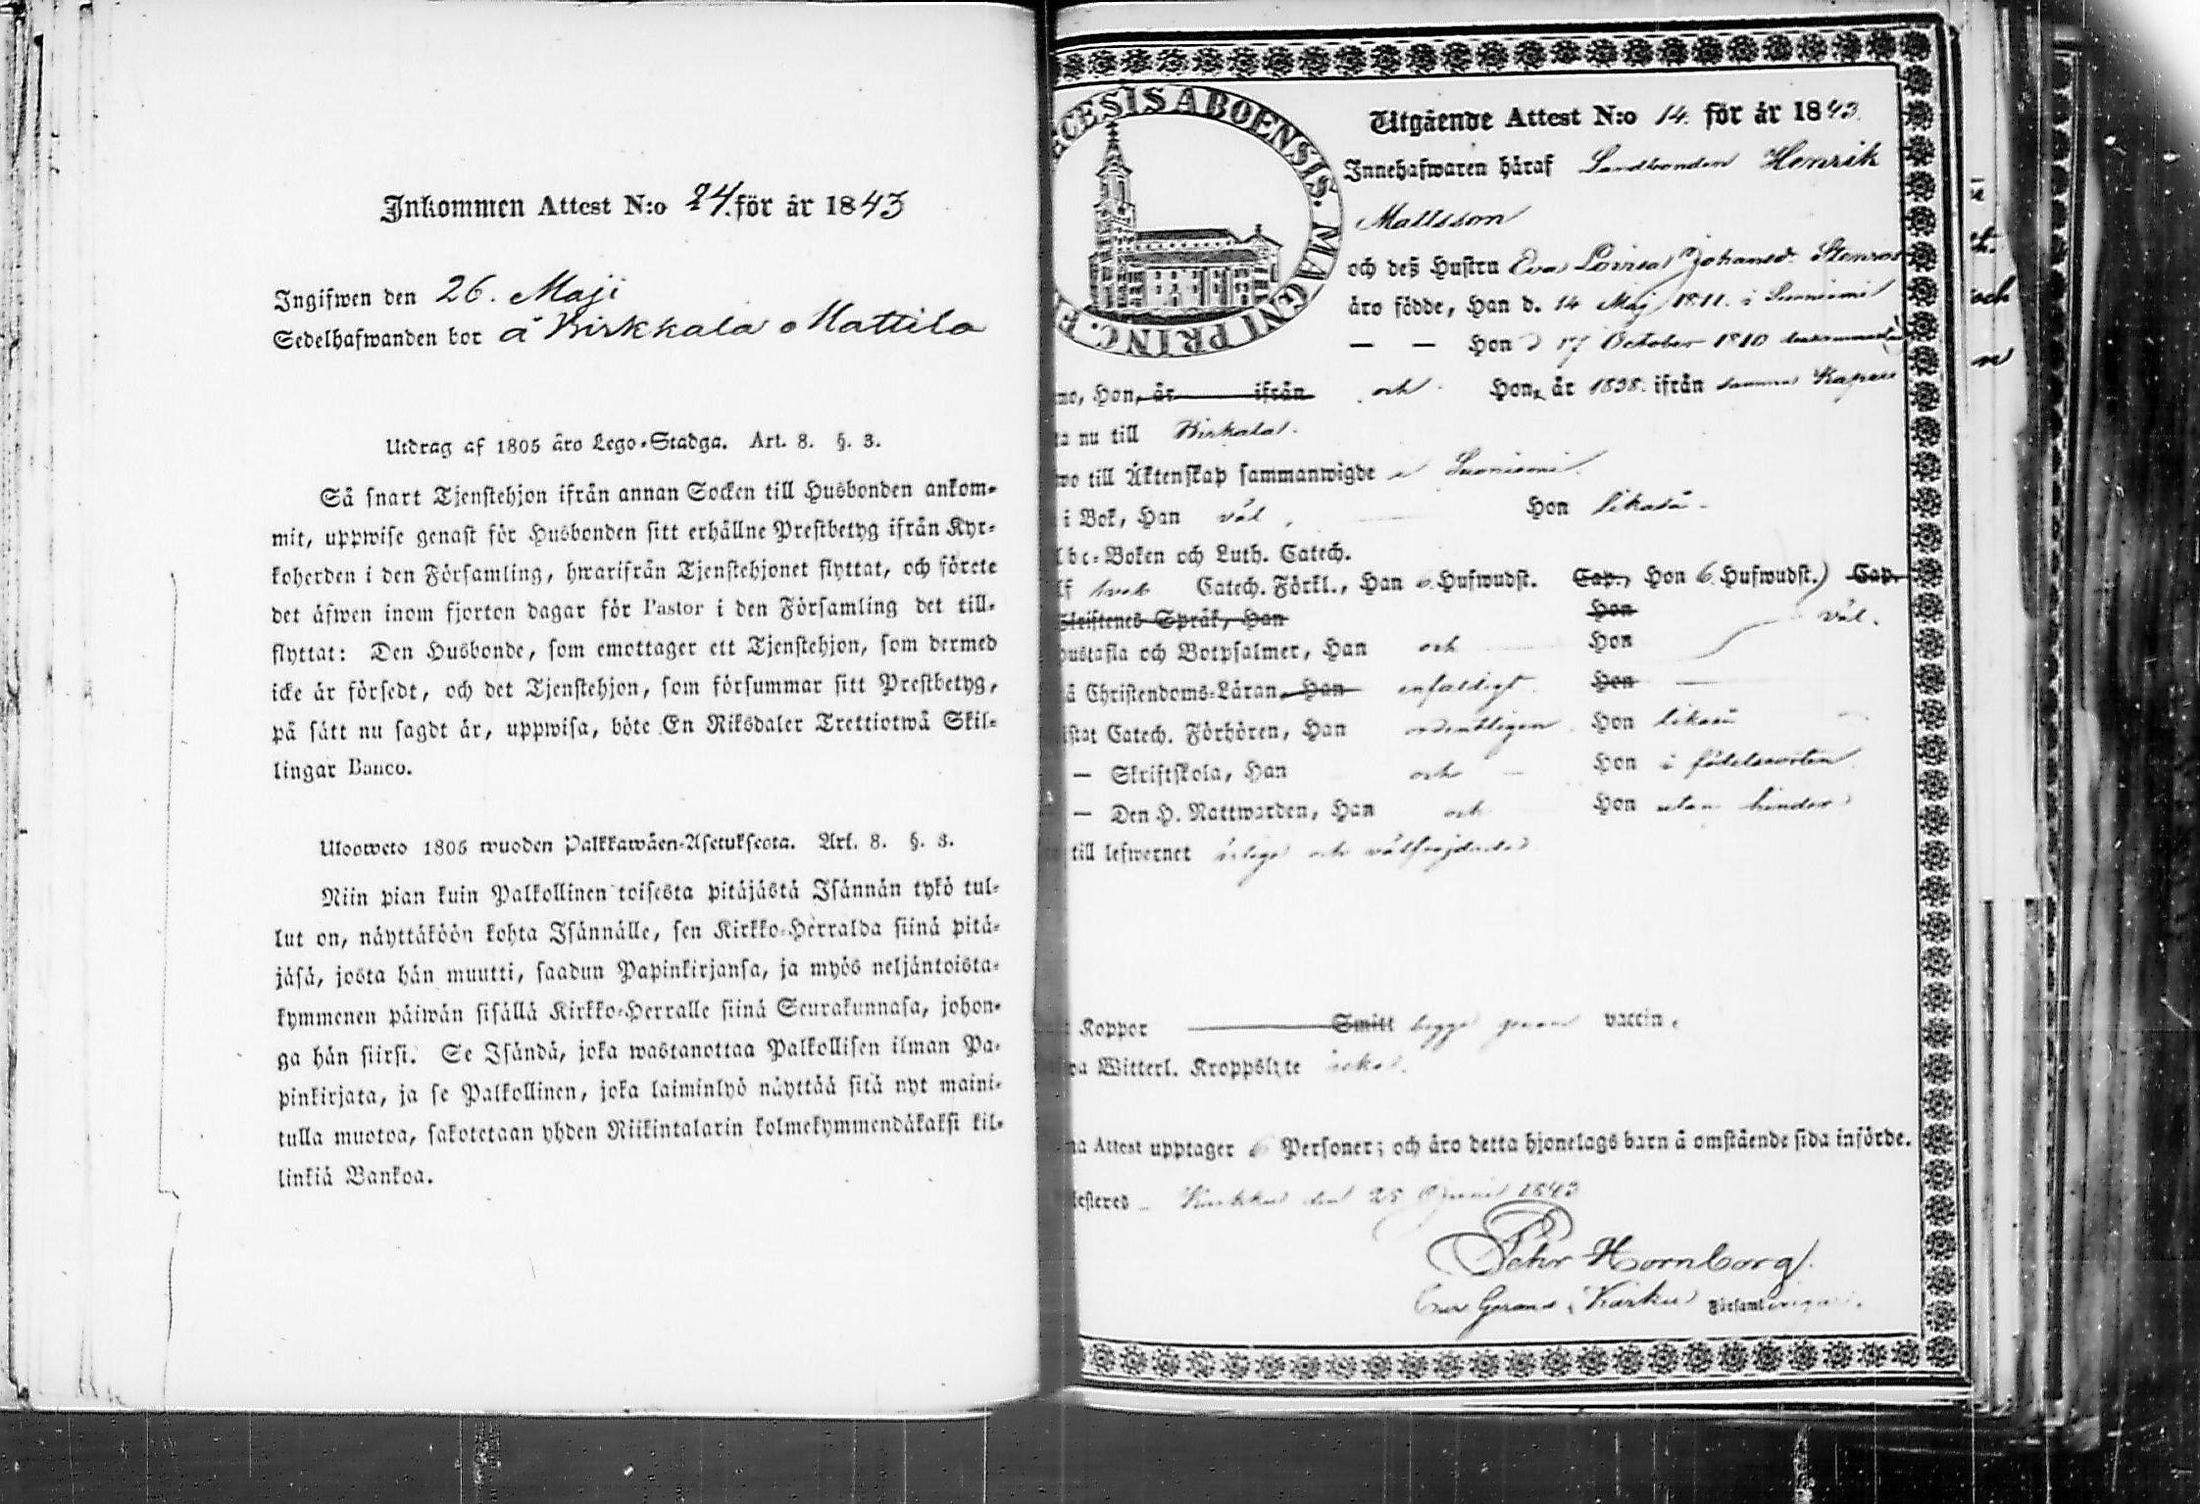 Inkommen Attest N:o 24. för år 1843
Ingifwen den 26. Maji
Sedelhafwanden bor å Birkkala Mattila
Utdrag af 1805 års Lego-Stadga. Art. 8. §. 3.
Så snart Tjenstehjon ifrån annan Socken till Husbonden ankom-
mit, uppwise genast för Husbonden sitt erhållne Prestbetyg ifrån Kyr-
koherden i den Församling, hwarifrån Tjenstehjonet flyttat, och förete
det äfwen inom fjorton dagar för Pastor i den Församling det till-
flyttat: Den Husbonde, som emottager ett Tjenstehjon, som dermed
icke är försedt, och det Tjenstehjon, som försummar sitt Prestbetyg,
på sätt nu sagdt är, uppwisa, böte En Riksdaler Trettiotwå Skil-
lingar Banco.
Ulosweto 1805 wuoden Palkkawäen-Asetuksesta. Art. 8. §. 3.
Niin pian kuin Palkollinen toisesta pitäjästä Isännän tykö tul-
lut on, näyttäköön kohta Isännälle, sen Kirkko-Herralda siinä pitä-
jäsä, josta hän muutti, saadun Papinkirjansa, ja myös neljäntoista-
kymmenen päiwän sisällä Kirkko-Herralle siinä Seurakunnasa, johon-
ga hän siirsi. Se Isändä, joka wastanottaa Palkollisen ilman Pa-
pinkirjata, ja se Palkollinen, joka laiminlyö näyttää sitä nyt maini-
tulla muotoa, sakotetaan yhden Riikintalarin kolmekymmendäkaksi kil-
linkiä Bankoa.
ECESIS ABOENSIS. MAGNI PRINC. F
Utgående Attest N:o 14. för år 1843.
Innehafwaren häraf Landbonden Henrik
Mattsson
och deß Hustru Eva Lovisa Johansd. Stenros
äro födde, Han d. 14 Maj 1811. i Suoniemi
— — Hon d 17 October 1810
mo, Hon, är ifrån och Hon, år 1838. ifrån samma Kapell
ta nu till Birkala.
wo till Äktenskap sammanwigde i Suoniemi
i Bok, Han väl, Hon likaså
Abc-Boken och Luth. Catech.
Catech. Förkl., Han 6 Hufwudst. Cap., Hon 6. Hufwudst.) Cap.
Skriftenes Språk, Han Hon väl.
Hustafla och Botpsalmer, Han och Hon
å Christendoms-Läran, Han enfaldigt Hon
istat Catech. Förhören, Han ordentligen Hon likaså
— Skriftskola, Han och Hon i födelseorten
— Den H. Nattwarden, Han och Hon utan hinder
till lefwernet ärliga och välfrejdade
Koppor Smitt begge genom vaccin.
Witterl. Kroppslyte
na Attest upptager 6 Personer; och äro detta hjonelags barn å omstående sida införde.
testeres Karkku den 25 1843
Pehr Hornborg.
Karku Församlingar.